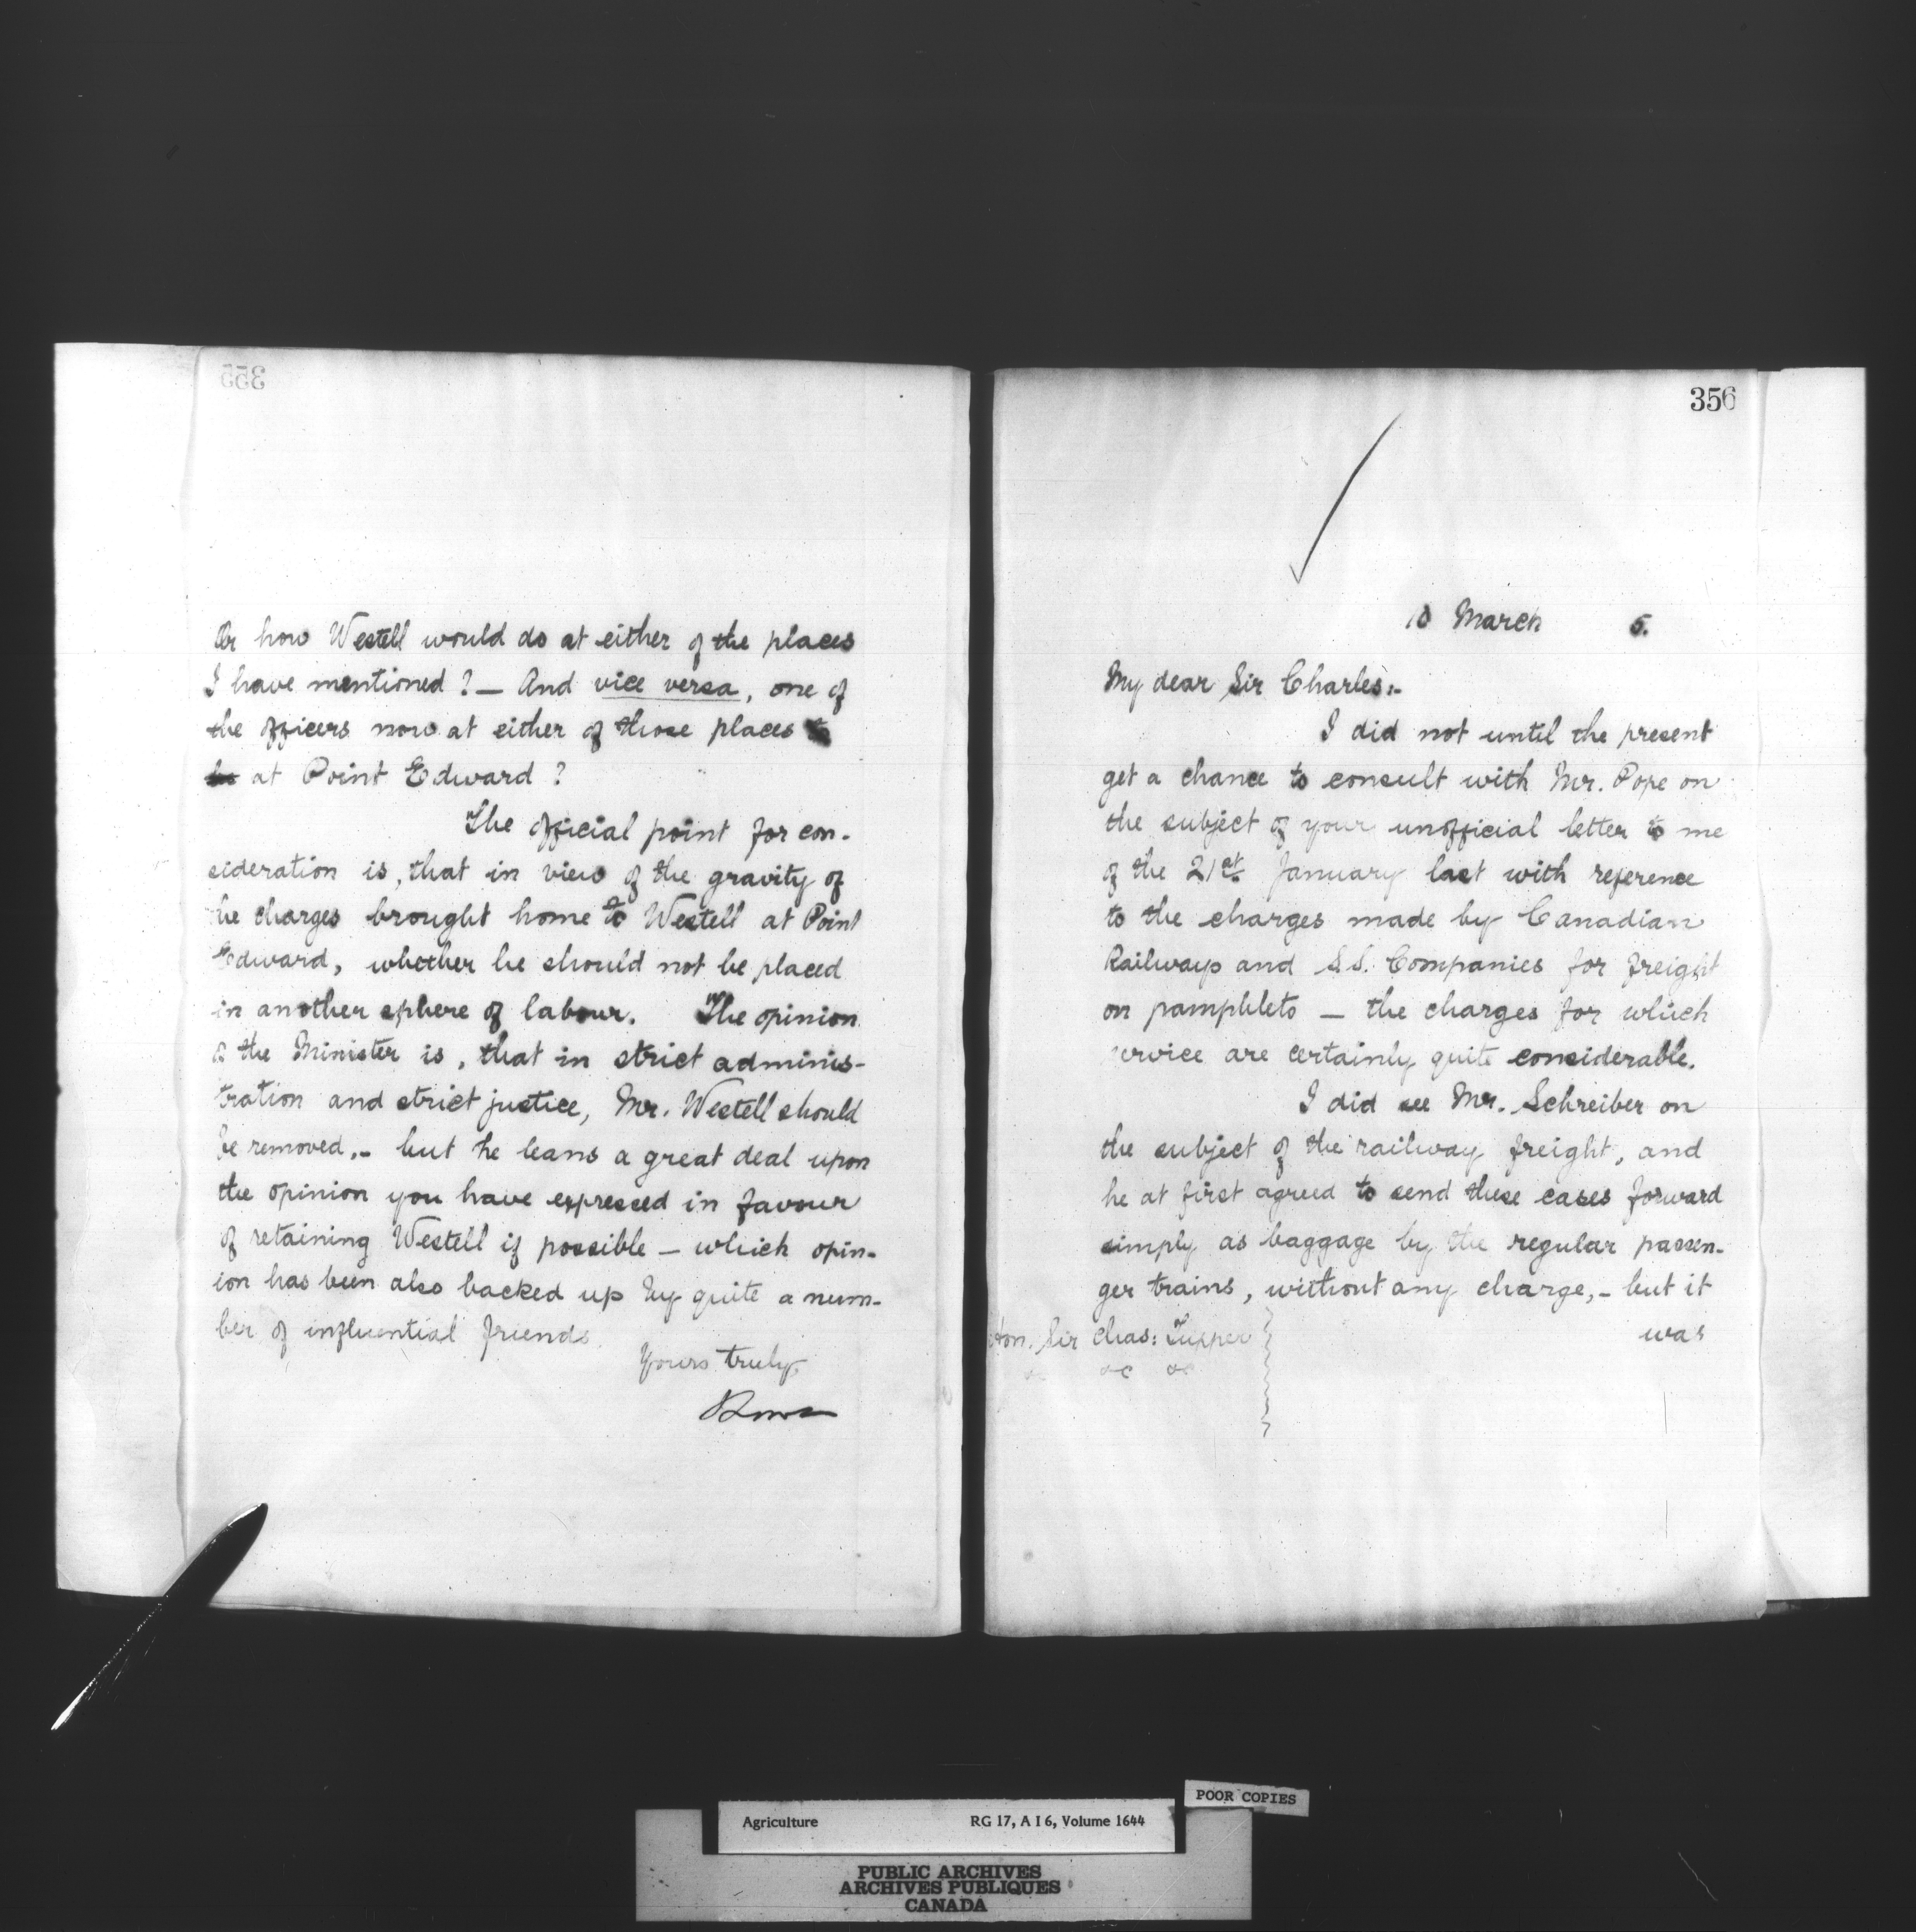 355
Or how Westell would do at either of the places
I have mentioned? — And vice versa, one of
the officers now at either of those places to
be at Point Edward?
The official point for con-
sideration is, that in view of the gravity of
the charges brought home to Westell at Point
Edward, whether he should not be placed
in another sphere of labour. The opinion
of the Minister is, that in strict adminis-
tration and strict justice, Mr. Westell should
be removed,- but he leans a great deal upon
the opinion you have expressed in favour
of retaining Westell if possible — which opin-
ion has been also backed up by quite a num-
ber of influential friends.
Yours truly
356
10 March 5.
My dear Sir Charles:-
I did not until the present
get a chance to consult with Mr. Pope on
the subject of your unofficial letter to me
of the 21st January last with reference
to the charges made by Canadian
Railways and S.S. Companies for freight
on pamphlets — the charges for which
service are certainly quite considerable.
I did see Mr. Schreiber on
the subject of the railway freight, and
he at first agreed to send these cases forward
simply as baggage by the regular passen-
ger trains, without any charge,- but it
was
Hon. Sir Chas: Tupper
&c &c &c
POOR COPIES
Agriculture RG 17, A I 6, Volume 1644
PUBLIC ARCHIVES
ARCHIVES PUBLIQUES
CANADA